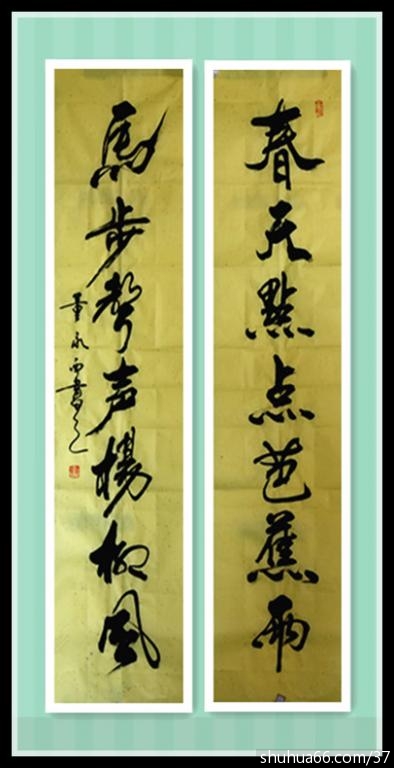 春天點点芭蕉雨
馬步聲声楊柳風
董永西書
shuhua66.com/37